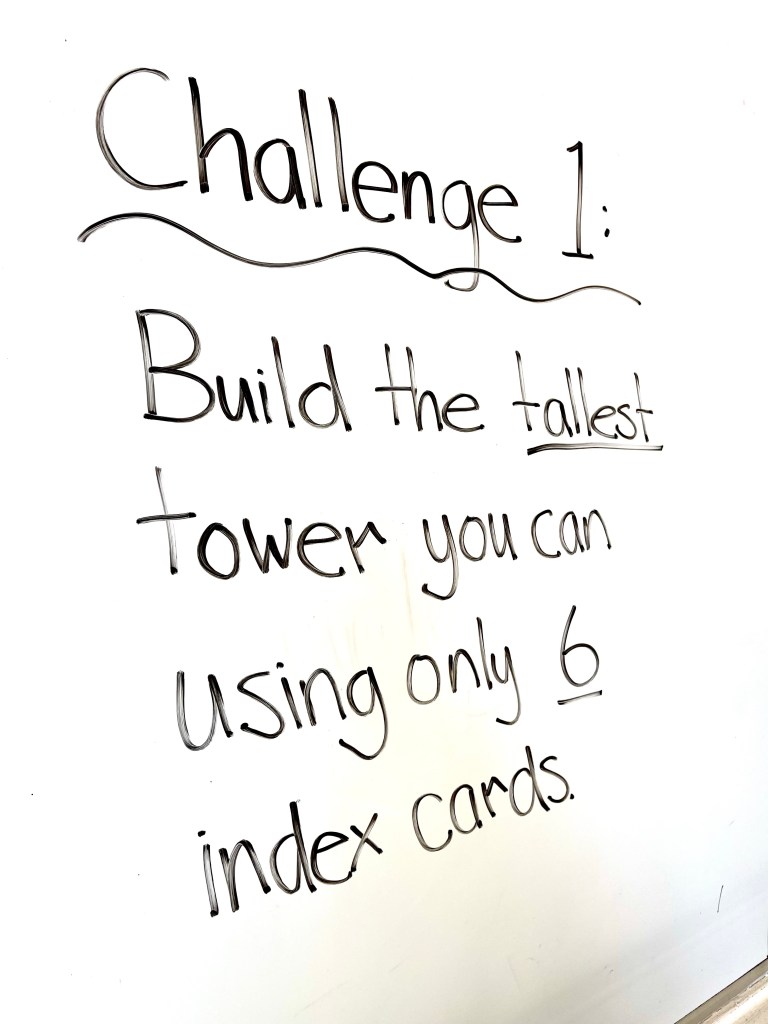 Challenge 1:
Build the tallest
tower you can
using only 6
index cards.